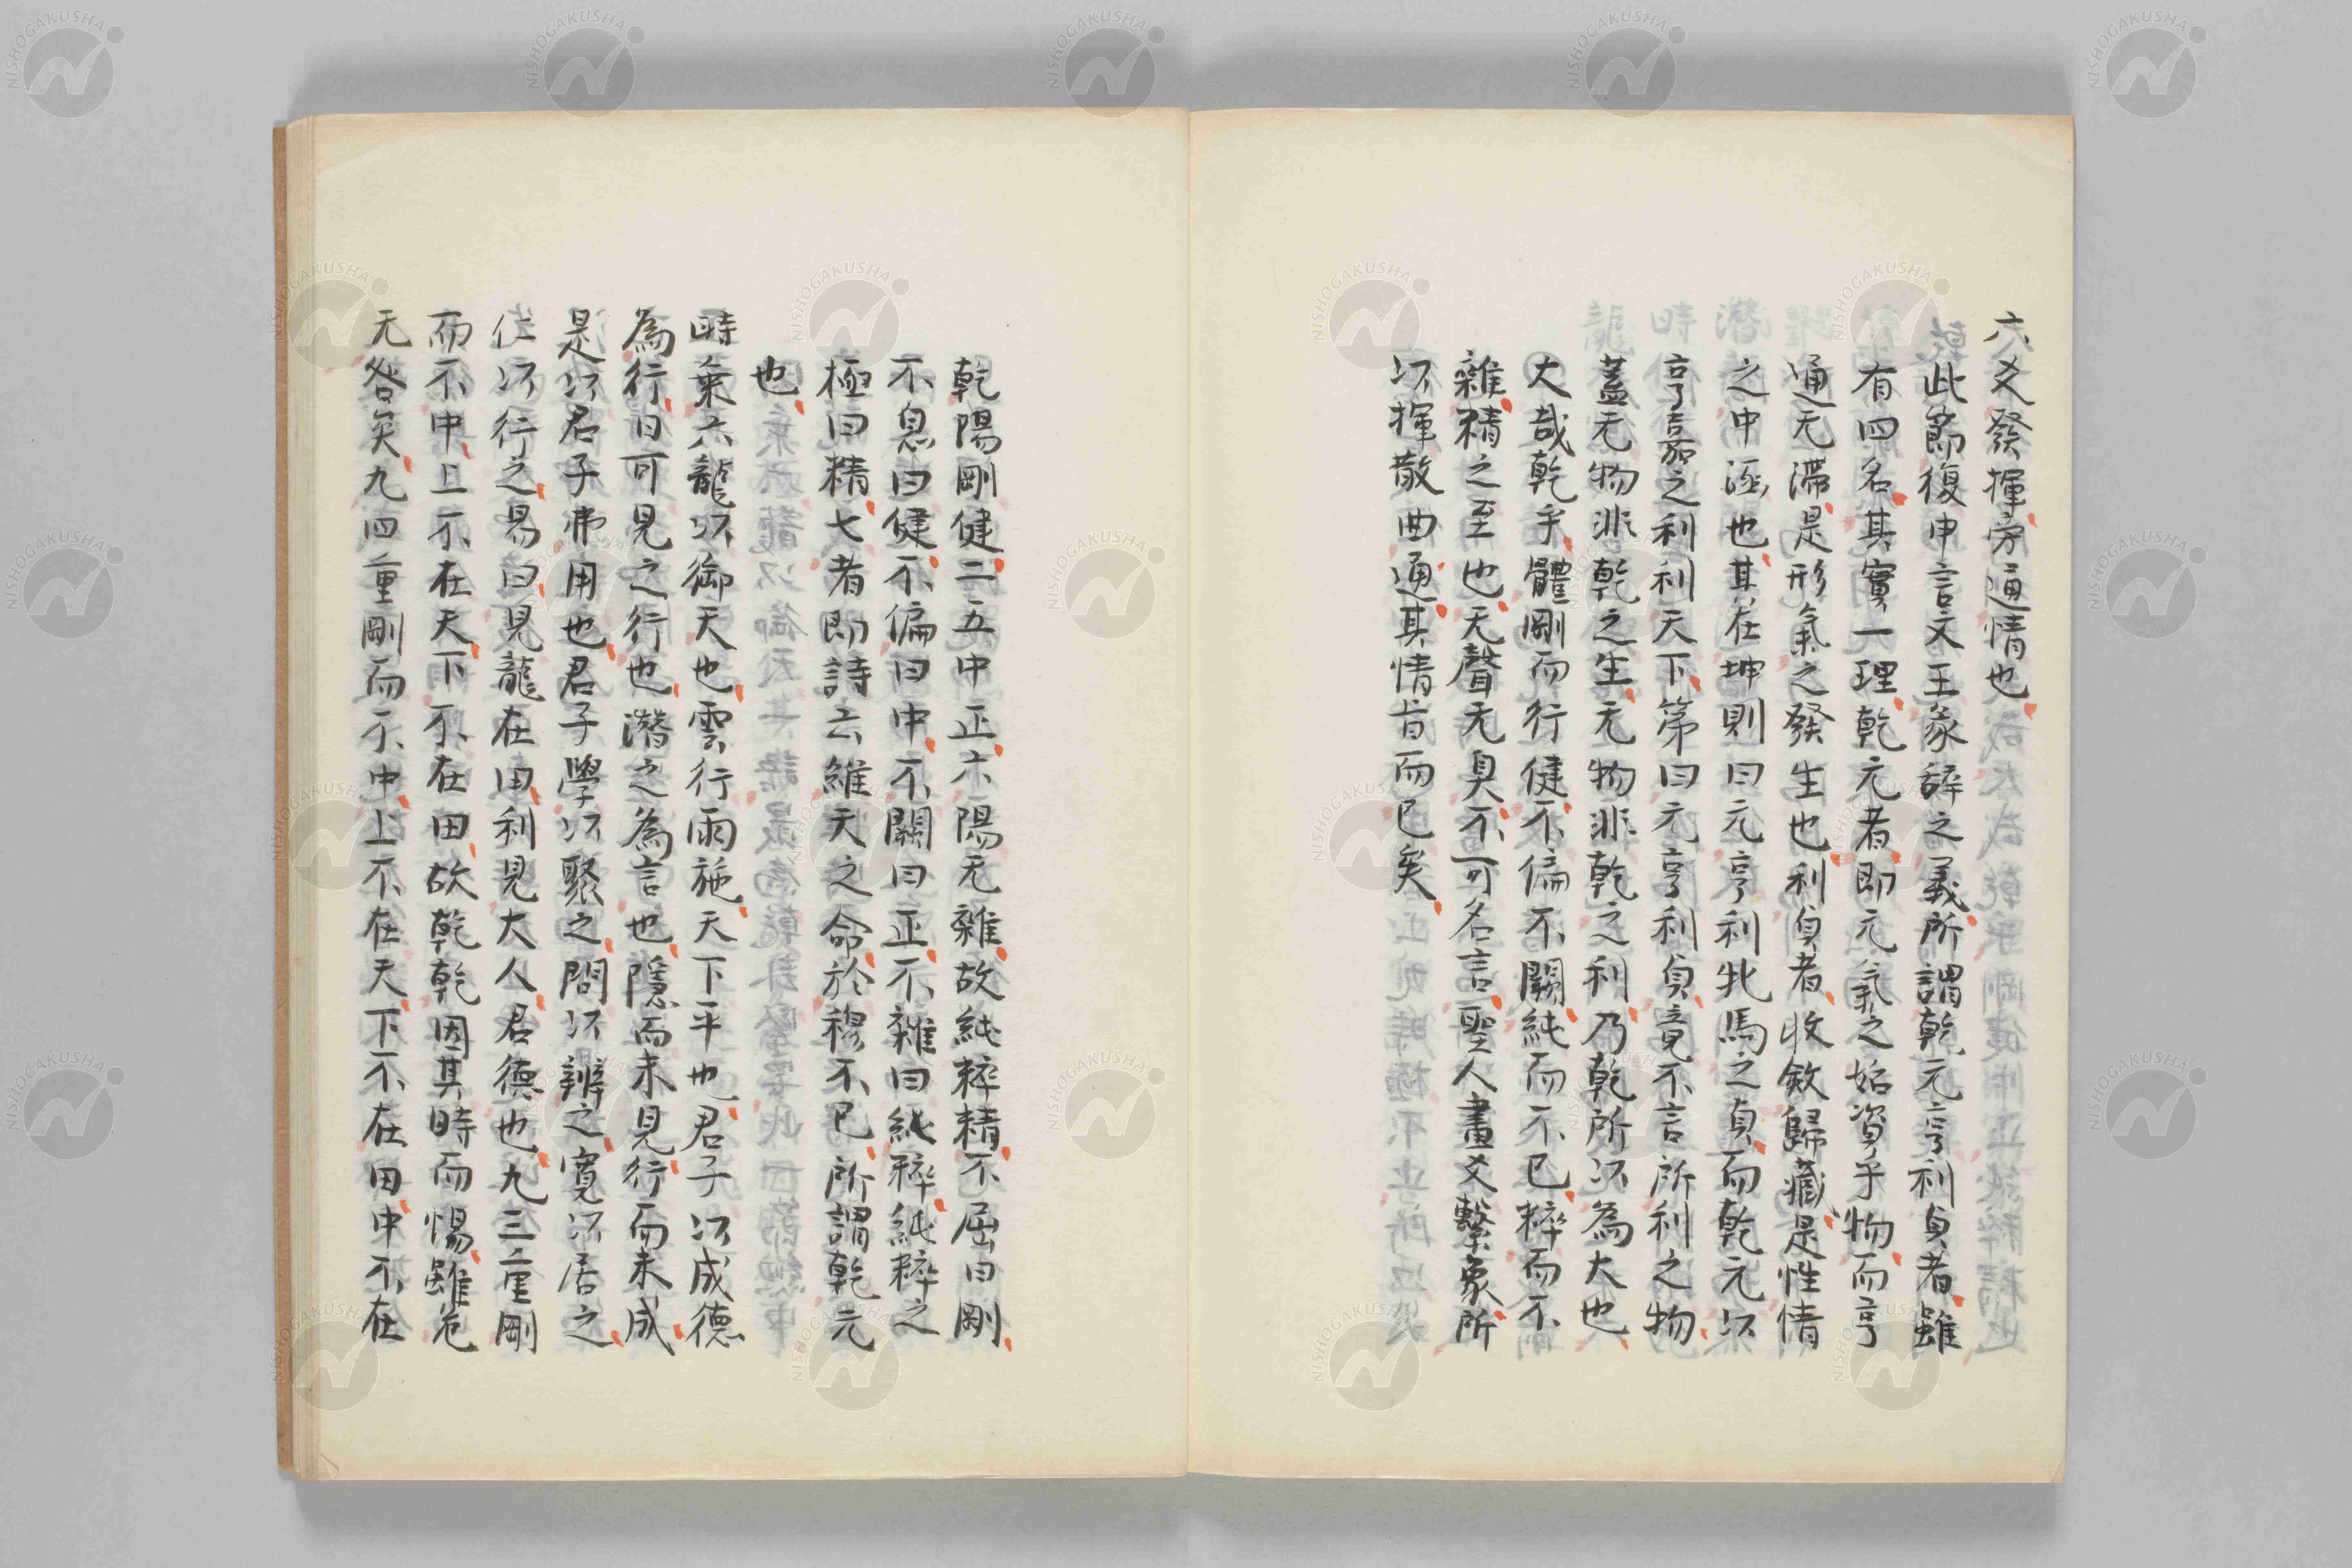 六爻發揮旁通情也
此節復申言文王彖辞之義所謂乾元亨利貞者雖
有四名其實一理乾元者即元氣之始資乎物而亨
通无滯是形氣之發生也利貞者收斂歸藏是性情
之中涵也其在坤則曰元亨利牝馬之貞而乾元以
亨嘉之利利天下第曰元亨利貞竟不言所利之物
蓋无物非乾之生无物非乾之利乃乾所以為大也
大哉乾乎體剛而行健不偏不闕純而不已粹而不
雜精之至也无聲无臭不可名言聖人畫爻繫象所
以揮散曲通其情旨而已矣
乾陽剛健二五中正六陽无雜故純粹精不屈曰剛
不息曰健不偏曰中不闕曰正不雜曰純粹純粹之
極曰精七者即詩云維天之命於穆不已所謂乾元
也
時乘六龍以御天也雲行雨施天下平也君子以成德
為行日可見之行也潛之為言也隱而未見行而未成
是以君子弗用也君子學以聚之問以辨之寬以居之
仁以行之易曰見龍在田利見大人君德也九三重剛
而不中上不在天下不在田故乾乾因其時而惕雖危
无咎矣九四重剛而不中上不在天下不在田中不在
NISHOGAKUSHA